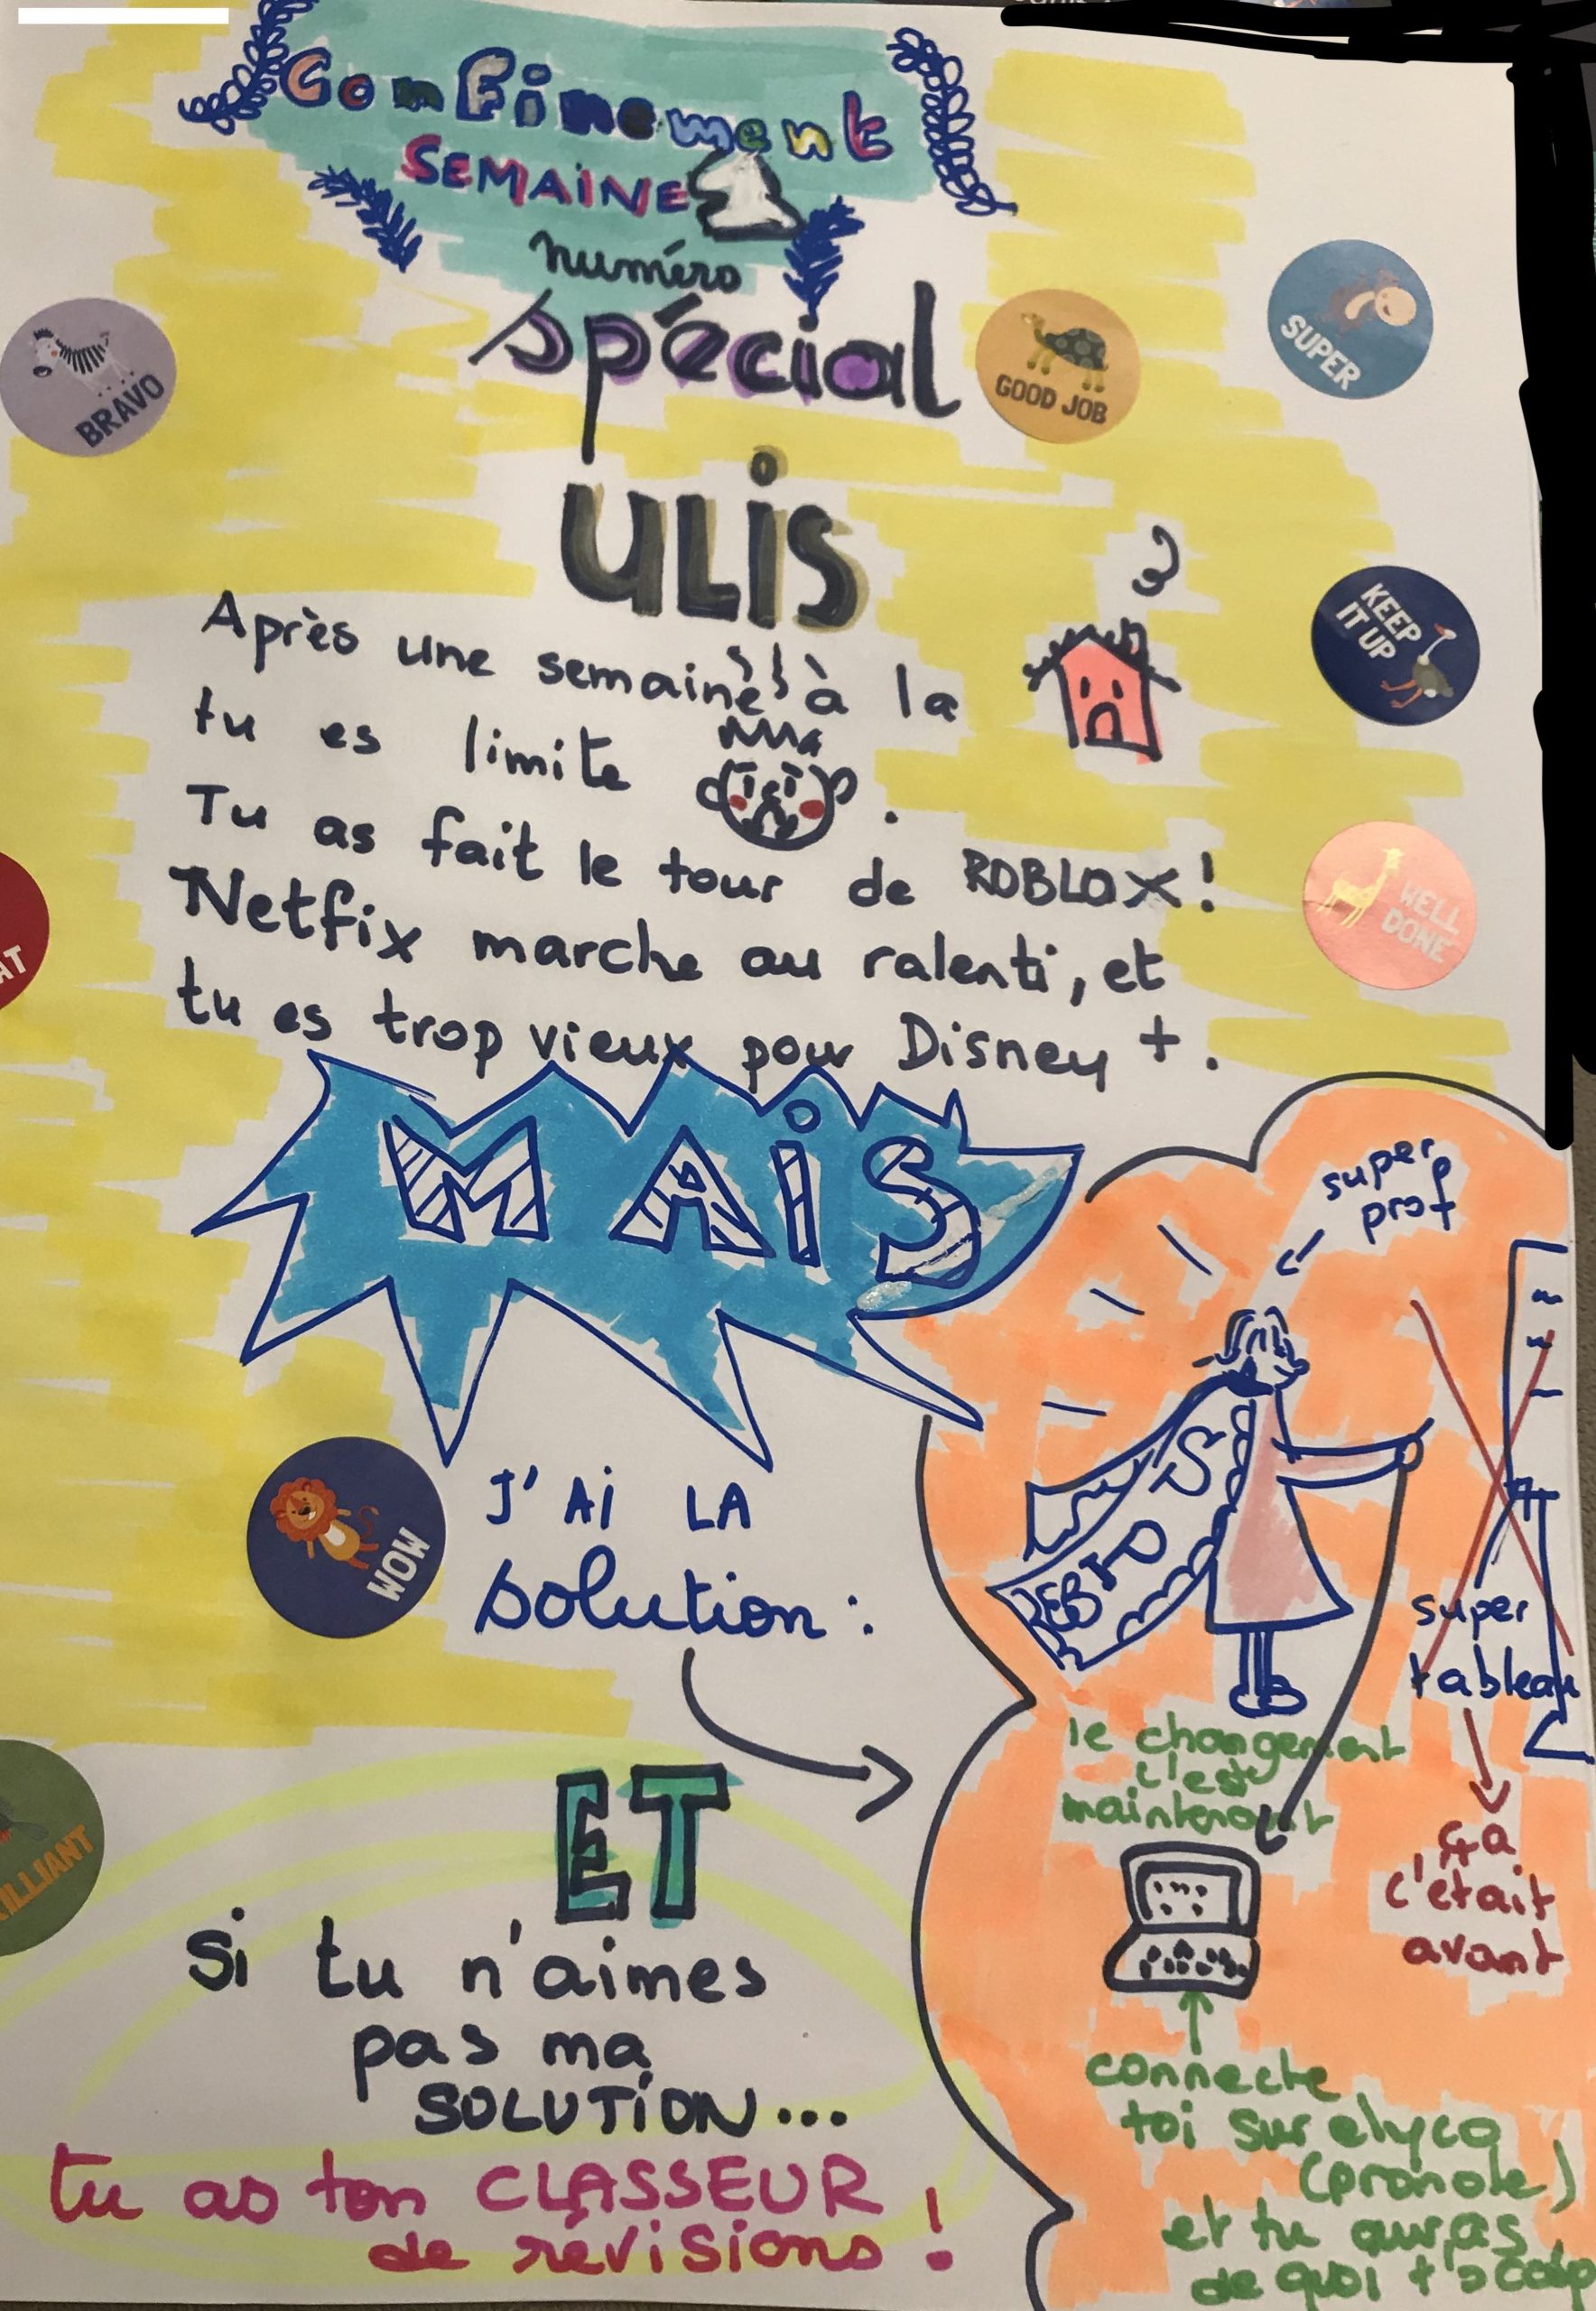 Confinement
SEMAINE 2
numéro
spécial
ULiS
BRAVO
GOOD JOB
SUPER
KEEP
IT UP
WELL
DONE
Après une semaine à la
tu es limite
.
Tu as fait le tour de ROBLOX!
Netfix marche au ralenti, et
tu es trop vieux pour Disney +.
MAiS
super
prof
WOW
J'Ai LA
solution :
S
super
tableau
le changement
c'est
maintenant
ça
c'était
avant
ET
Si tu n'aimes
pas ma
SOLUTiON...
tu as ton CLASSEUR
de révisions !
connecte
toi sur elyco
(pronote)
et tu auras
de quoi